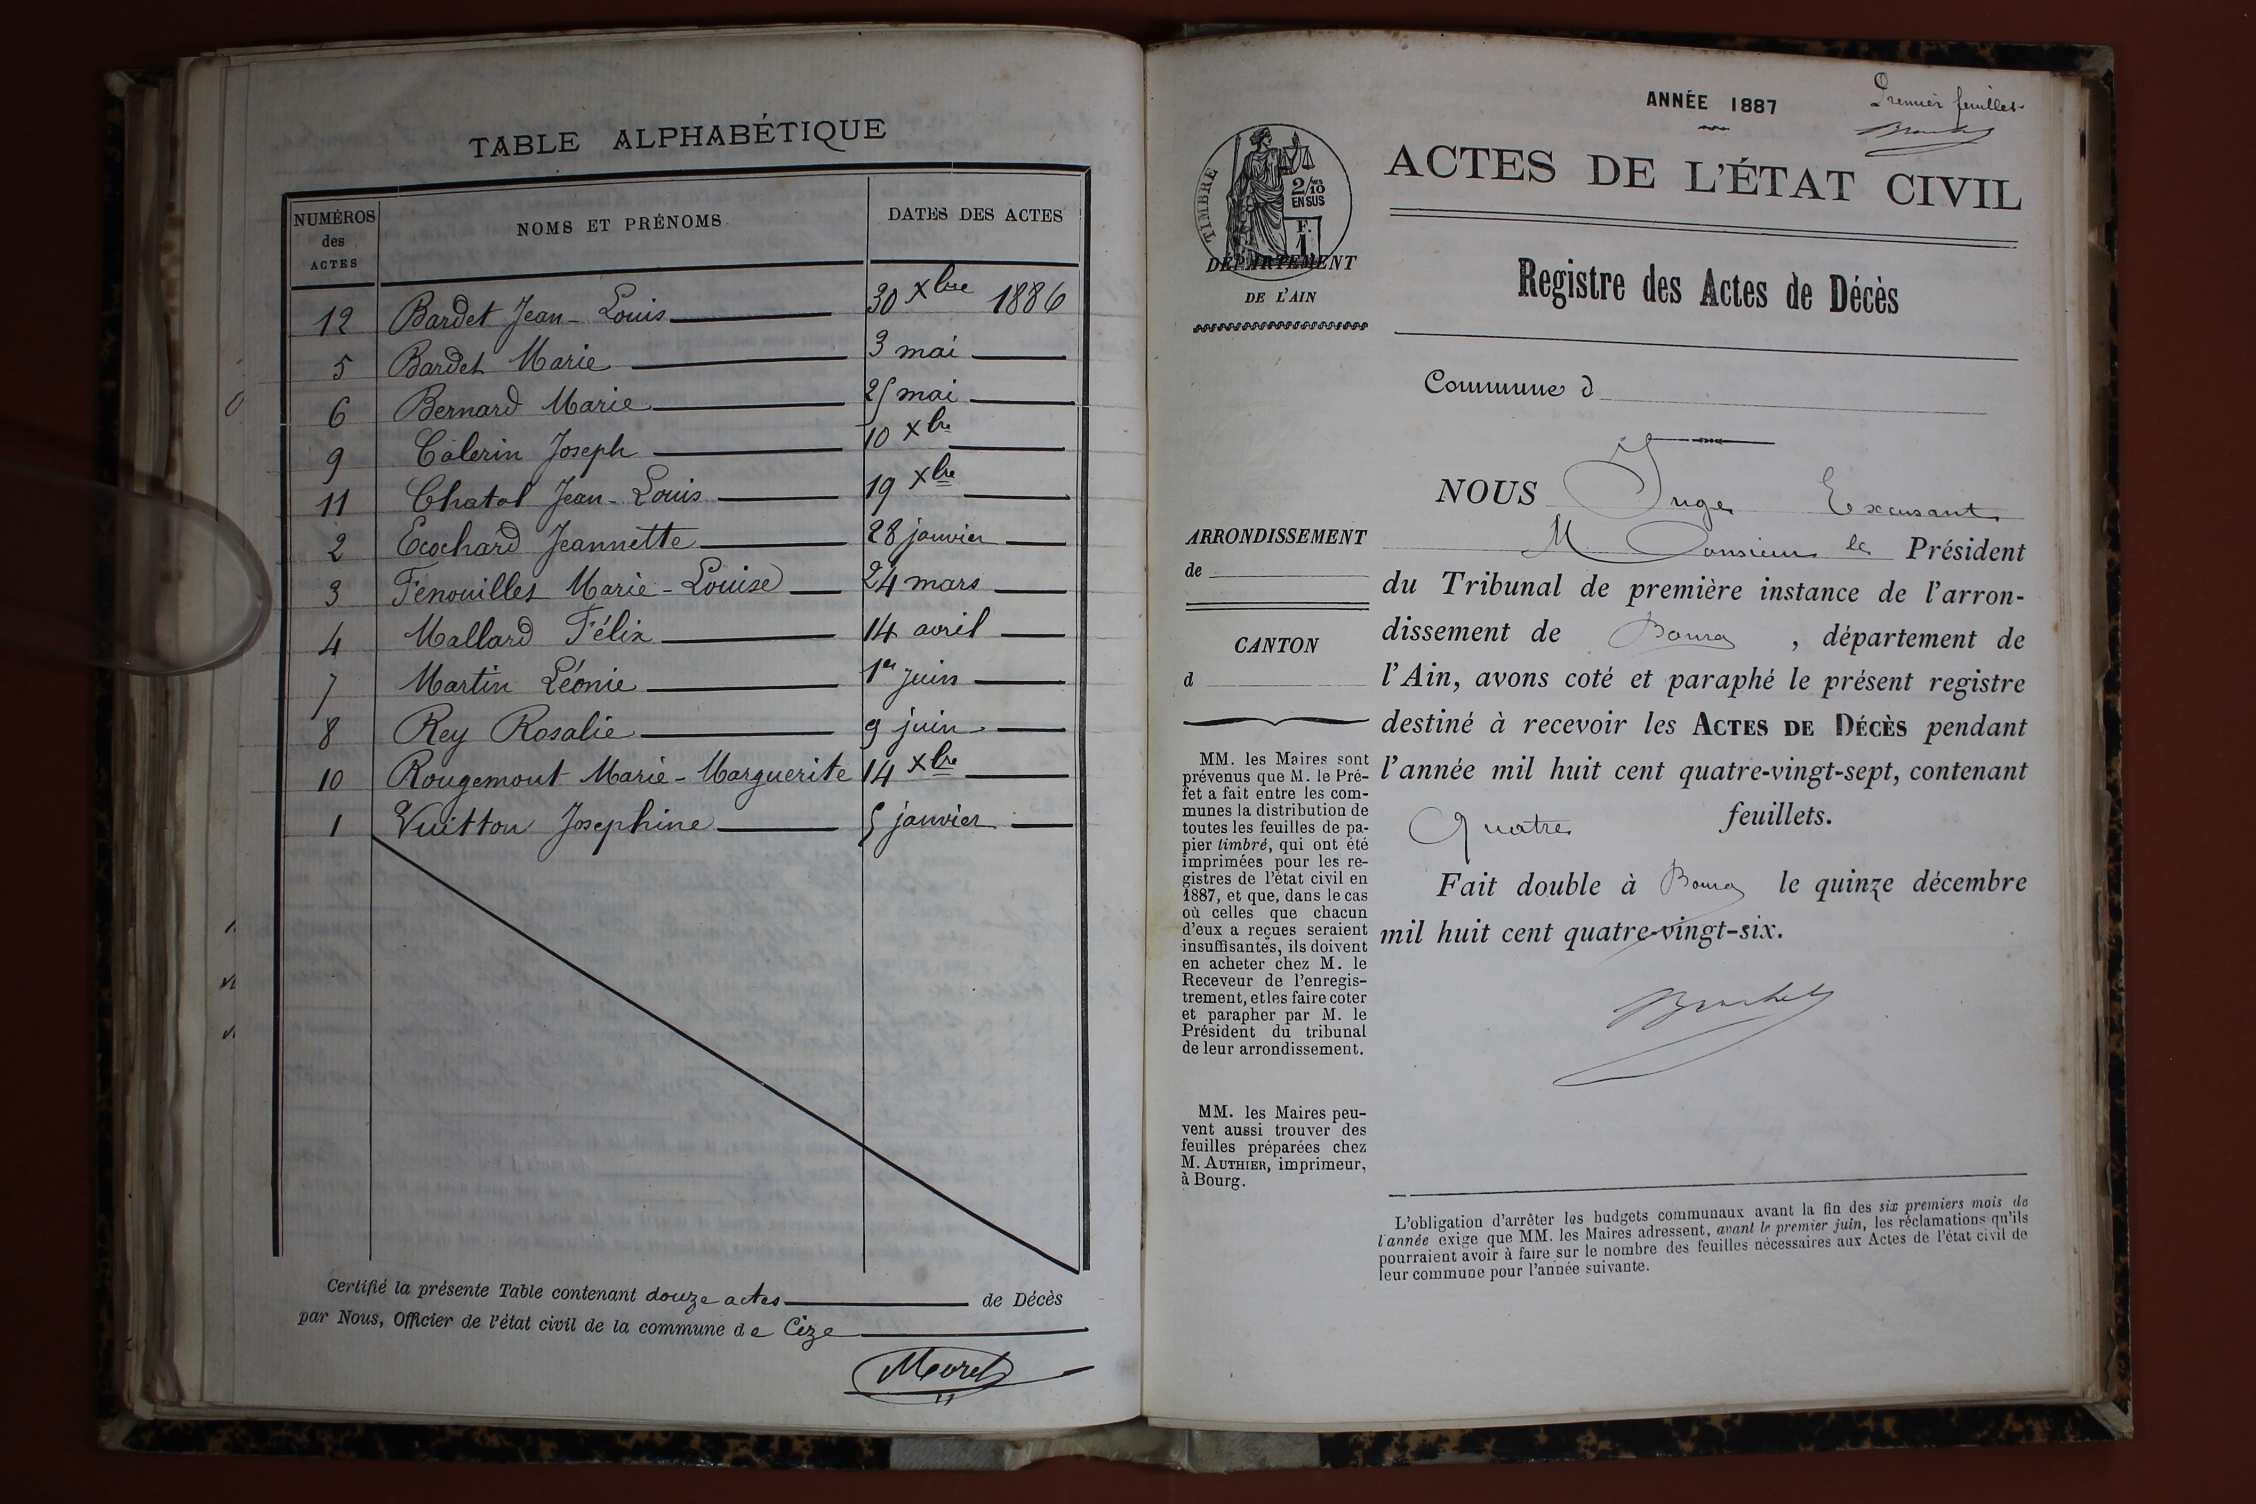 TABLE ALPHABÉTIQUE
NUMÉROS des ACTES NOMS ET PRÉNOMS DATES DES ACTES
12 Bardet Jean-Louis 30 Xbre 1886
5 Bardet Marie 3 mai
6 Bernard Marie 25 mai
9 Calerin Joseph 10 Xbre
11 Chatol Jean-Louis 19 Xbre
2 Ecochard Jeannette 28 janvier
3 Fenouillet Marie-Louise 24 mars
4 Mallard Félix 14 avril
7 Martin Léonie 1er juin
8 Rey Rosalie 9 juin
10 Rougemont Marie-Marguerite 14 Xbre
1 Vuitton Josephine 5 janvier
Certifié la présente Table contenant douze actes de Décès
par Nous, Officier de l'état civil de la commune de Cize
Morel
ANNÉE 1887
Premier feuillet
TIMBRE
2/10
EN SUS
F.
1
ACTES DE L'ÉTAT CIVIL
DÉPARTEMENT
DE L'AIN
Registre des Actes de Décès
Commune d
ARRONDISSEMENT
de
CANTON
d
MM. les Maires sont
prévenus que M. le Pré-
fet a fait entre les com-
munes la distribution de
toutes les feuilles de pa-
pier timbré, qui ont été
imprimées pour les re-
gistres de l'état civil en
1887, et que, dans le cas
où celles que chacun
d'eux a reçues seraient
insuffisantes, ils doivent
en acheter chez M. le
Receveur de l'enregis-
trement, et les faire coter
et parapher par M. le
Président du tribunal
de leur arrondissement.
MM. les Maires peu-
vent aussi trouver des
feuilles préparées chez
M. AUTHIER, imprimeur,
à Bourg.
NOUS Juge Excusant
Monsieur le Président
du Tribunal de première instance de l'arron-
dissement de Bourg, département de
l'Ain, avons coté et paraphé le présent registre
destiné à recevoir les ACTES DE DÉCÈS pendant
l'année mil huit cent quatre-vingt-sept, contenant
Quatre feuillets.
Fait double à Bourg le quinze décembre
mil huit cent quatre-vingt-six.
L'obligation d'arrêter les budgets communaux avant la fin des six premiers mois de
l'année exige que MM. les Maires adressent, avant le premier juin, les réclamations qu'ils
pourraient avoir à faire sur le nombre des feuilles nécessaires aux Actes de l'état civil de
leur commune pour l'année suivante.